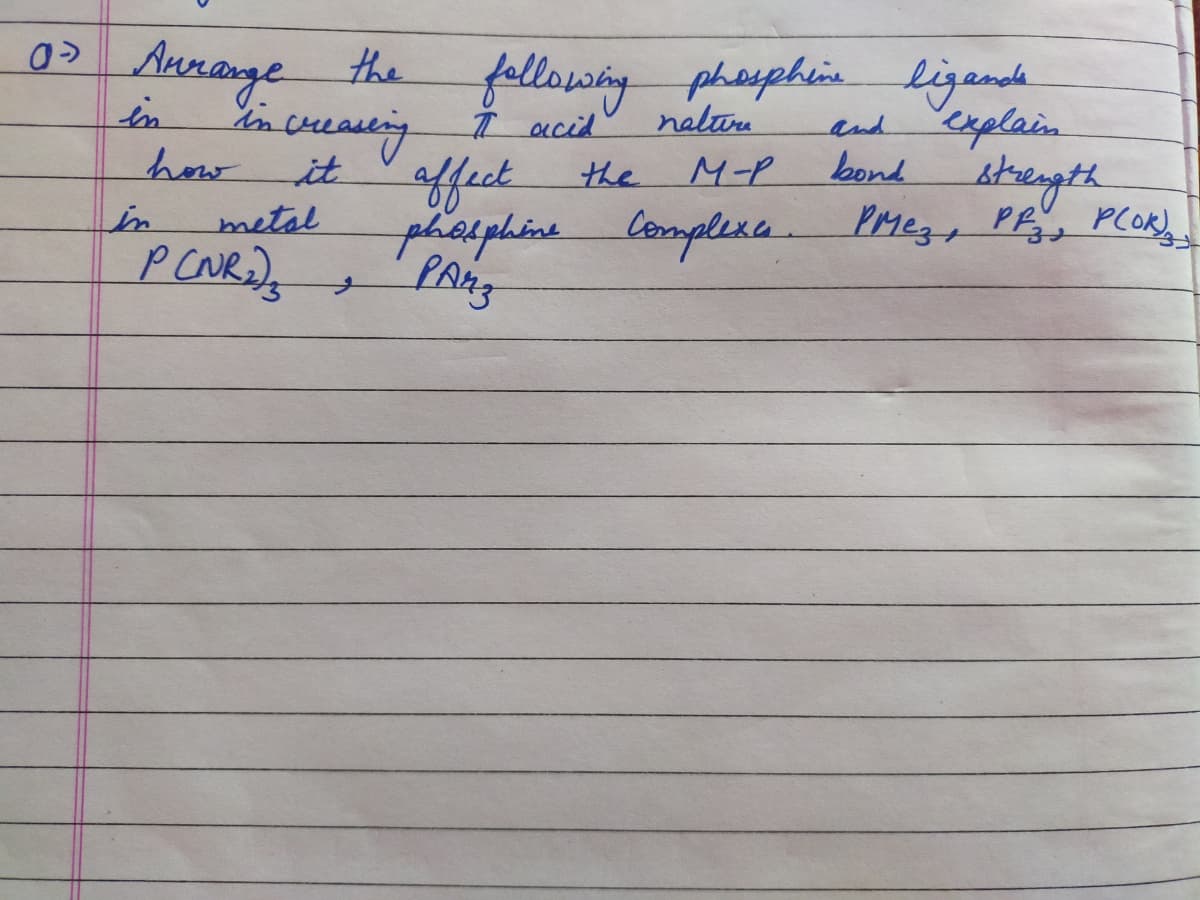 Q⇒ Arrange the following phosphine ligands
in increasing π acid nature and explain
how it affect the M-P bond strength
in metal phosphine Complexes. PMe₃, PF₃, P(OR)₃,
P(NR₂)₃, PAr₃